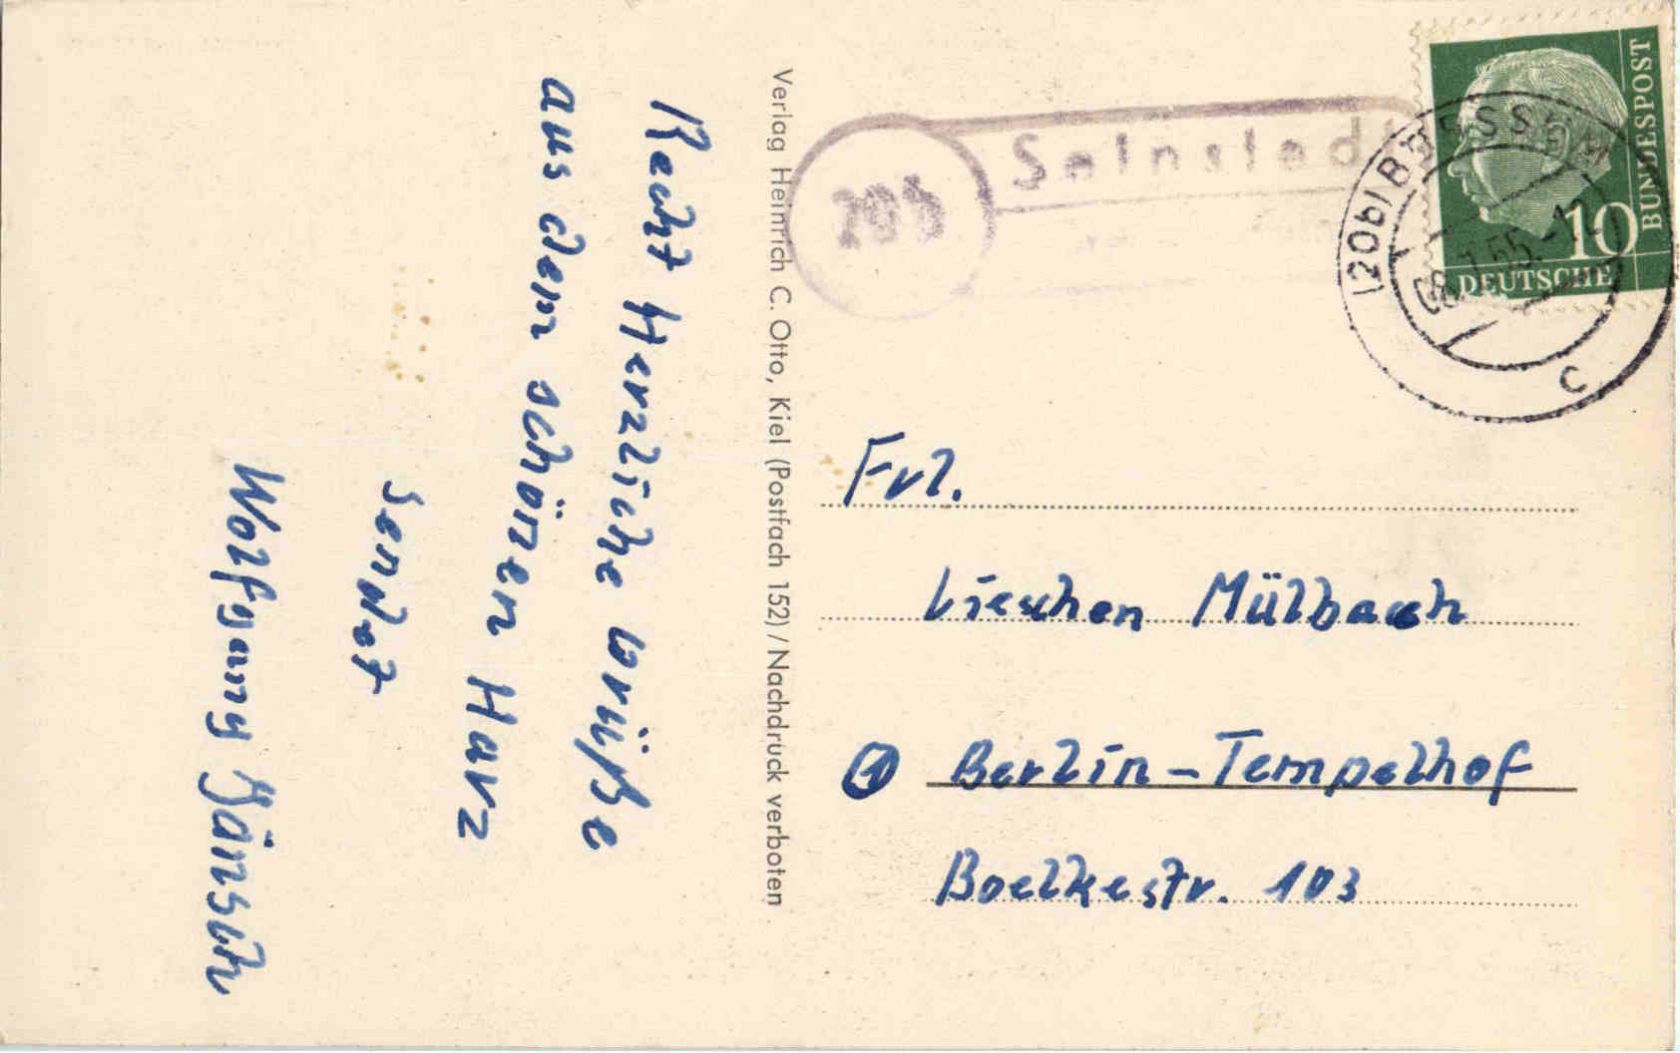 Recht Herzliche Grüße
aus dem schönen Harz
sendet
Wolfgang Hänsch
Verlag Heinrich C. Otto, Kiel (Postfach 152) / Nachdruck verboten
20b
Seinstedt
(20b) BÖRSSUM
C
BUNDESPOST
10
DEUTSCHE
Frl.
Lieschen Mülbach
Berlin-Tempelhof
Boelkestr. 103